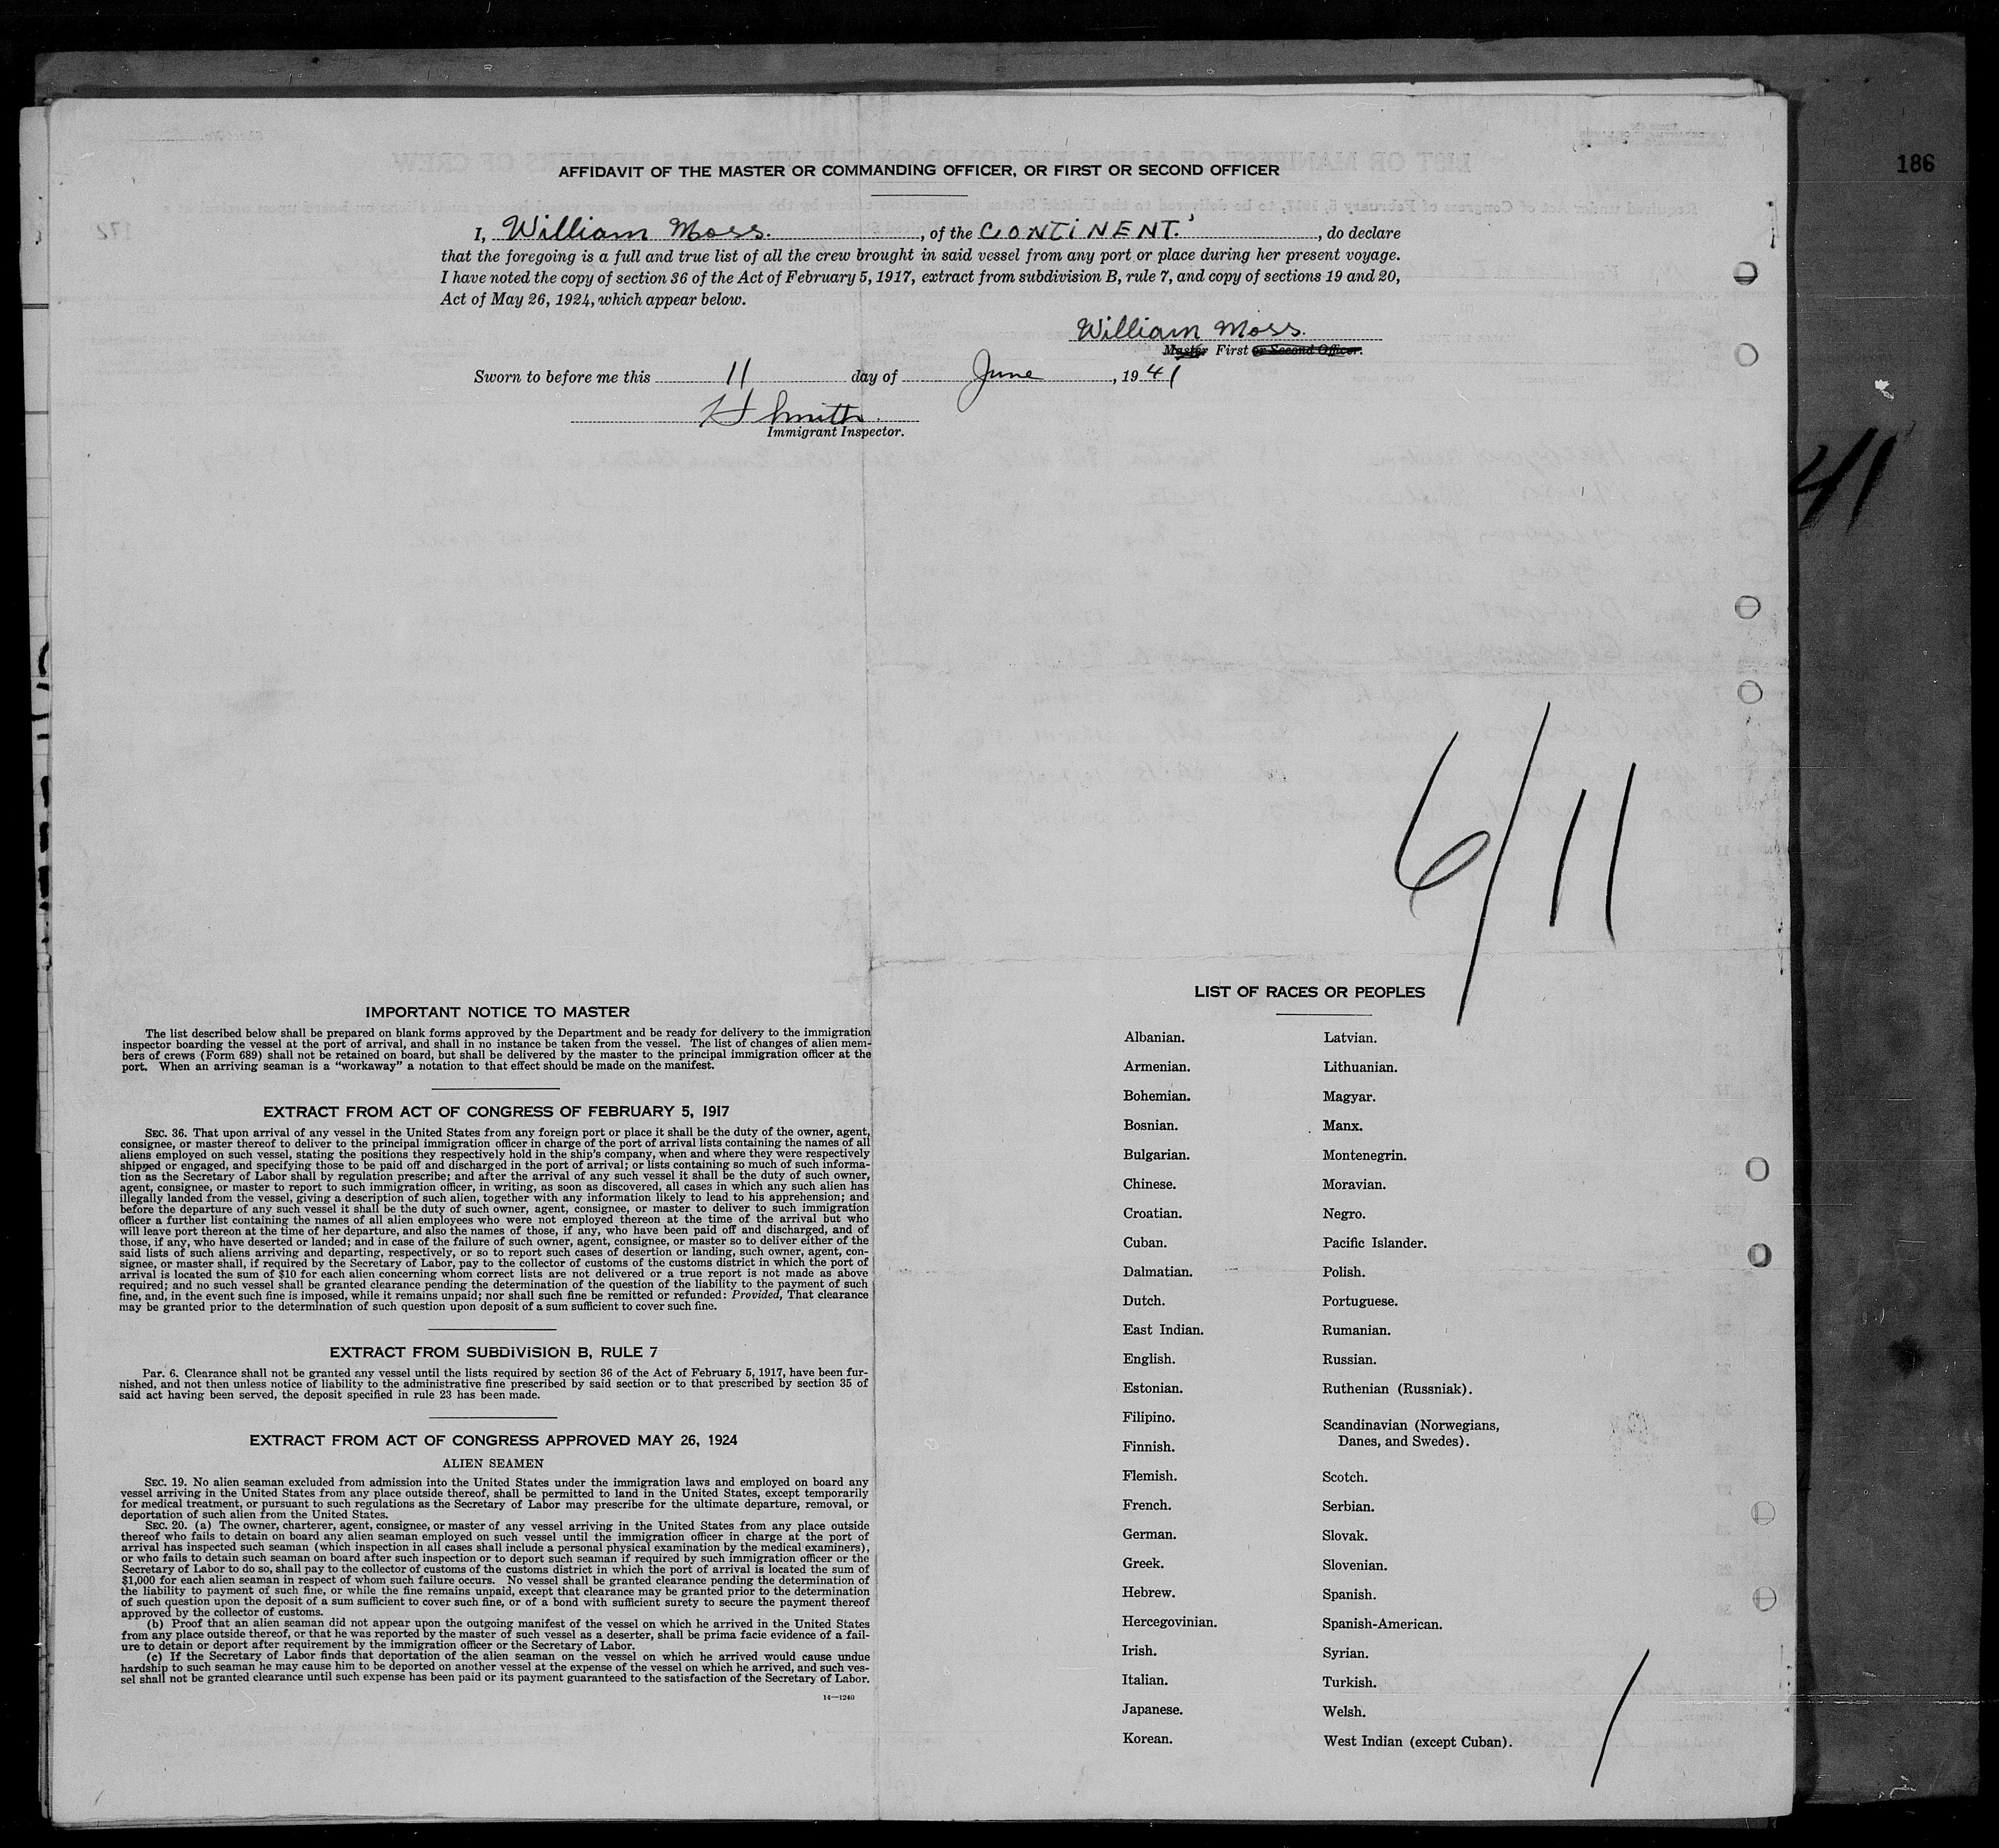 186
AFFIDAVIT OF THE MASTER OR COMMANDING OFFICER, OR FIRST OR SECOND OFFICER
I, William Moss. , of the CONTINENT. , do declare
that the foregoing is a full and true list of all the crew brought in said vessel from any port or place during her present voyage.
I have noted the copy of section 36 of the Act of February 5, 1917, extract from subdivision B, rule 7, and copy of sections 19 and 20,
Act of May 26, 1924, which appear below.
William Moss.
Master First or Second Officer.
Sworn to before me this 11 day of June , 1941
H Smith
Immigrant Inspector.
41
6/11
IMPORTANT NOTICE TO MASTER
The list described below shall be prepared on blank forms approved by the Department and be ready for delivery to the immigration
inspector boarding the vessel at the port of arrival, and shall in no instance be taken from the vessel. The list of changes of alien mem-
bers of crews (Form 689) shall not be retained on board, but shall be delivered by the master to the principal immigration officer at the
port. When an arriving seaman is a "workaway" a notation to that effect should be made on the manifest.
EXTRACT FROM ACT OF CONGRESS OF FEBRUARY 5, 1917
SEC. 36. That upon arrival of any vessel in the United States from any foreign port or place it shall be the duty of the owner, agent,
consignee, or master thereof to deliver to the principal immigration officer in charge of the port of arrival lists containing the names of all
aliens employed on such vessel, stating the positions they respectively hold in the ship's company, when and where they were respectively
shipped or engaged, and specifying those to be paid off and discharged in the port of arrival; or lists containing so much of such informa-
tion as the Secretary of Labor shall by regulation prescribe; and after the arrival of any such vessel it shall be the duty of such owner,
agent, consignee, or master to report to such immigration officer, in writing, as soon as discovered, all cases in which any such alien has
illegally landed from the vessel, giving a description of such alien, together with any information likely to lead to his apprehension; and
before the departure of any such vessel it shall be the duty of such owner, agent, consignee, or master to deliver to such immigration
officer a further list containing the names of all alien employees who were not employed thereon at the time of the arrival but who
will leave port thereon at the time of her departure, and also the names of those, if any, who have been paid off and discharged, and of
those, if any, who have deserted or landed; and in case of the failure of such owner, agent, consignee, or master so to deliver either of the
said lists of such aliens arriving and departing, respectively, or so to report such cases of desertion or landing, such owner, agent, con-
signee, or master shall, if required by the Secretary of Labor, pay to the collector of customs of the customs district in which the port of
arrival is located the sum of $10 for each alien concerning whom correct lists are not delivered or a true report is not made as above
required; and no such vessel shall be granted clearance pending the determination of the question of the liability to the payment of such
fine, and, in the event such fine is imposed, while it remains unpaid; nor shall such fine be remitted or refunded: Provided, That clearance
may be granted prior to the determination of such question upon deposit of a sum sufficient to cover such fine.
EXTRACT FROM SUBDIVISION B, RULE 7
Par. 6. Clearance shall not be granted any vessel until the lists required by section 36 of the Act of February 5, 1917, have been fur-
nished, and not then unless notice of liability to the administrative fine prescribed by said section or to that prescribed by section 35 of
said act having been served, the deposit specified in rule 23 has been made.
EXTRACT FROM ACT OF CONGRESS APPROVED MAY 26, 1924
ALIEN SEAMEN
SEC. 19. No alien seaman excluded from admission into the United States under the immigration laws and employed on board any
vessel arriving in the United States from any place outside thereof, shall be permitted to land in the United States, except temporarily
for medical treatment, or pursuant to such regulations as the Secretary of Labor may prescribe for the ultimate departure, removal, or
deportation of such alien from the United States.
SEC. 20. (a) The owner, charterer, agent, consignee, or master of any vessel arriving in the United States from any place outside
thereof who fails to detain on board any alien seaman employed on such vessel until the immigration officer in charge at the port of
arrival has inspected such seaman (which inspection in all cases shall include a personal physical examination by the medical examiners),
or who fails to detain such seaman on board after such inspection or to deport such seaman if required by such immigration officer or the
Secretary of Labor to do so, shall pay to the collector of customs of the customs district in which the port of arrival is located the sum of
$1,000 for each alien seaman in respect of whom such failure occurs. No vessel shall be granted clearance pending the determination of
the liability to payment of such fine, or while the fine remains unpaid, except that clearance may be granted prior to the determination
of such question upon the deposit of a sum sufficient to cover such fine, or of a bond with sufficient surety to secure the payment thereof
approved by the collector of customs.
(b) Proof that an alien seaman did not appear upon the outgoing manifest of the vessel on which he arrived in the United States
from any place outside thereof, or that he was reported by the master of such vessel as a deserter, shall be prima facie evidence of a fail-
ure to detain or deport after requirement by the immigration officer or the Secretary of Labor.
(c) If the Secretary of Labor finds that deportation of the alien seaman on the vessel on which he arrived would cause undue
hardship to such seaman he may cause him to be deported on another vessel at the expense of the vessel on which he arrived, and such ves-
sel shall not be granted clearance until such expense has been paid or its payment guaranteed to the satisfaction of the Secretary of Labor.
14—1240
LIST OF RACES OR PEOPLES
Albanian.
Armenian.
Bohemian.
Bosnian.
Bulgarian.
Chinese.
Croatian.
Cuban.
Dalmatian.
Dutch.
East Indian.
English.
Estonian.
Filipino.
Finnish.
Flemish.
French.
German.
Greek.
Hebrew.
Hercegovinian.
Irish.
Italian.
Japanese.
Korean.
Latvian.
Lithuanian.
Magyar.
Manx.
Montenegrin.
Moravian.
Negro.
Pacific Islander.
Polish.
Portuguese.
Rumanian.
Russian.
Ruthenian (Russniak).
Scandinavian (Norwegians,
Danes, and Swedes).
Scotch.
Serbian.
Slovak.
Slovenian.
Spanish.
Spanish-American.
Syrian.
Turkish.
Welsh.
West Indian (except Cuban).